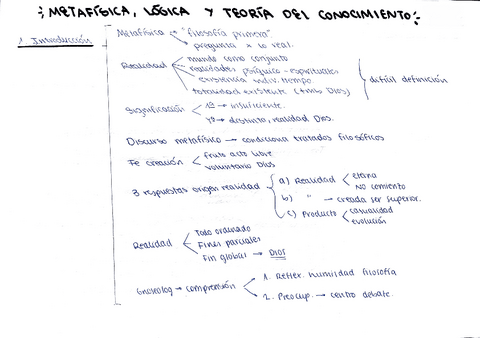 METAFÍSICA, LÓGICA Y TEORÍA DEL CONOCIMIENTO:
1. Introducción
Metafísica → "filosofía primera"
pregunta x lo real.
Realidad
mundo como conjunto
realidades psíquico-espirituales
existencia indiv. tiempo
totalidad existente (+más Dios)
difícil definición
Significación
1º → insuficiente.
distinta, realidad Dios.
Discurso metafísico → condiciona tratados filosóficos
Fe creación
fruto acto libre
voluntario Dios
3 respuestas origen realidad
a) Realidad
eterna
No comiento
b) " → creada ser superior.
c) Producto
casualidad
evolución
Realidad
Todo ordenado
Fines parciales
Fin global → DIOS
Gnoseolog → comprensión
1. Reflex. humildad filosofía
2. Preocup. → centro debate.